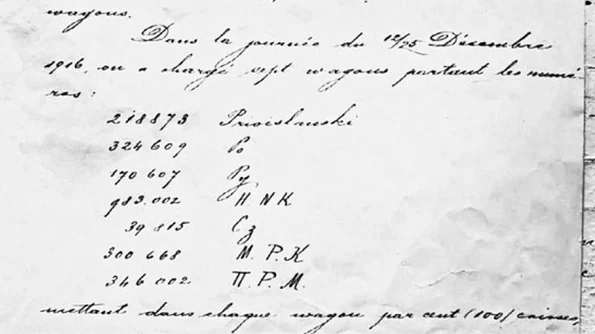 wagons.
Dans la journée du 12/25 Décembre
1916, on a chargé sept wagons portant les numé-
ros:
218873 Privislanski
324609 Po
170607 Ру
983.002 H N K
39815 Сз
300668 М. Р. К
346002 П. Р. М.
mettant dans chaque wagon par cent (100) caisses